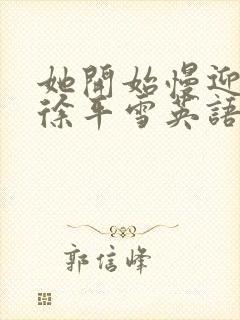 她開始慢迎
徐平雪英語
郭信峰